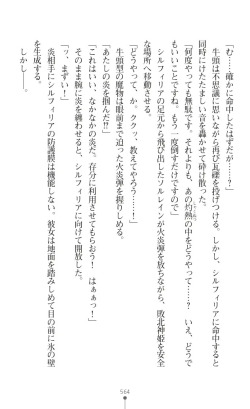 「む……確かに命中したはずだが……？」
　牛頭は不思議に思いながら再び瓦礫を投げつける。しかし、シルフィリアに命中すると
同時にけたたましい音を轟かせて砕け散った。
「何度やっても無駄です。それよりも、あの灼熱の中をどうやって……？　いえ、どうで
もいいことですね。もう一度倒すだけですので」
　シルフィリアの足元から飛び出したソルレインが火炎弾を放ちながら、敗北神姫を安全
な場所へ移動させる。
「どうやって、か。ククッ、教えてやろう」
　牛頭型の魔物は眼前まで迫った火炎弾を握りしめる。
「あたしの炎を掴んだ!?」
「これはいい、なかなかの炎だ。存分に利用させてもらおう。はぁぁっ！」
　そのまま腕に炎を纏わせると、シルフィリアに向けて開放した。
「ッ、まずい！」
　炎相手にシルフィリアの防護膜は機能しない。彼女は地面を踏みしめて目の前に氷の壁
を生成する。
　しかし――。
564